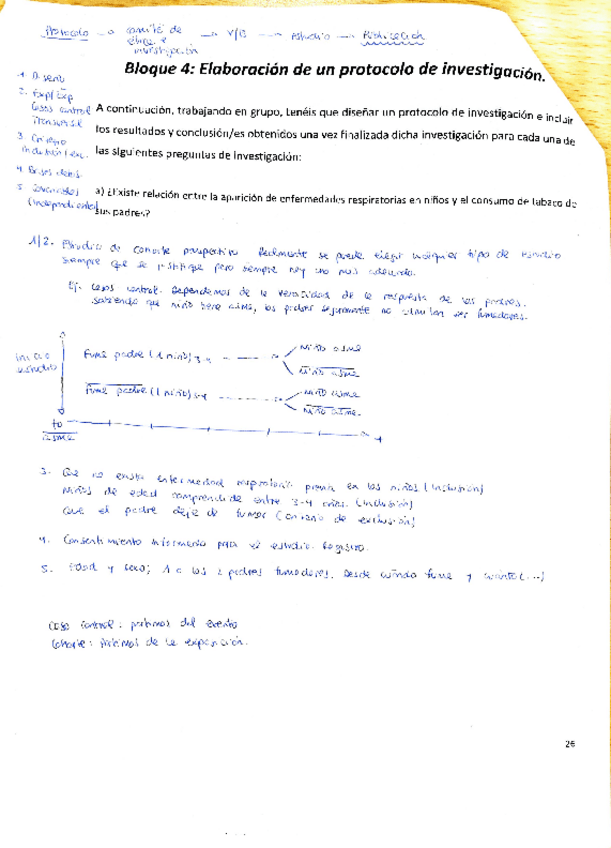 Protocolo → comité de ética e investigación → V/B → estudio → Publicación
Bloque 4: Elaboración de un protocolo de investigación.
1. Diseño
2. Exp/Exp
Casos control
Transversal
3. Criterio
inclusión/exc.
4. Bases datos.
5. Covariables
(independientes)
A continuación, trabajando en grupo, tenéis que diseñar un protocolo de investigación e incluir
los resultados y conclusión/es obtenidos una vez finalizada dicha investigación para cada una de
las siguientes preguntas de investigación:
a) ¿Existe relación entre la aparición de enfermedades respiratorias en niños y el consumo de tabaco de
sus padres?
1/2. Estudio de cohorte prospectivo. Realmente se puede elegir cualquier tipo de estudio
siempre que se justifique pero siempre hay uno más adecuado.
Ej. Casos control. Dependemos de la veracidad de la respuesta de los padres.
sabiendo que niño tiene asma, los padres seguramente no digan ser fumadores.
inicio
estudio
Fuma padre (1 niño) 3-4
niño asma
niño asma
Fuma padre (1 niño) 3-4
niño asma
niño asma.
t0
asma
3. Que no exista enfermedad respiratoria previa en los niños (inclusión)
Niños de edad comprendida entre 3-4 años. (inclusión)
Que el padre deje de fumar (criterio de exclusión)
4. Consentimiento informado para el estudio. Registro.
5. Edad y sexo; 1 o los 2 padres fumadores. Desde cuándo fuma y cuánto (...)
Caso control: partimos del evento
Cohorte: Partimos de la exposición.
26